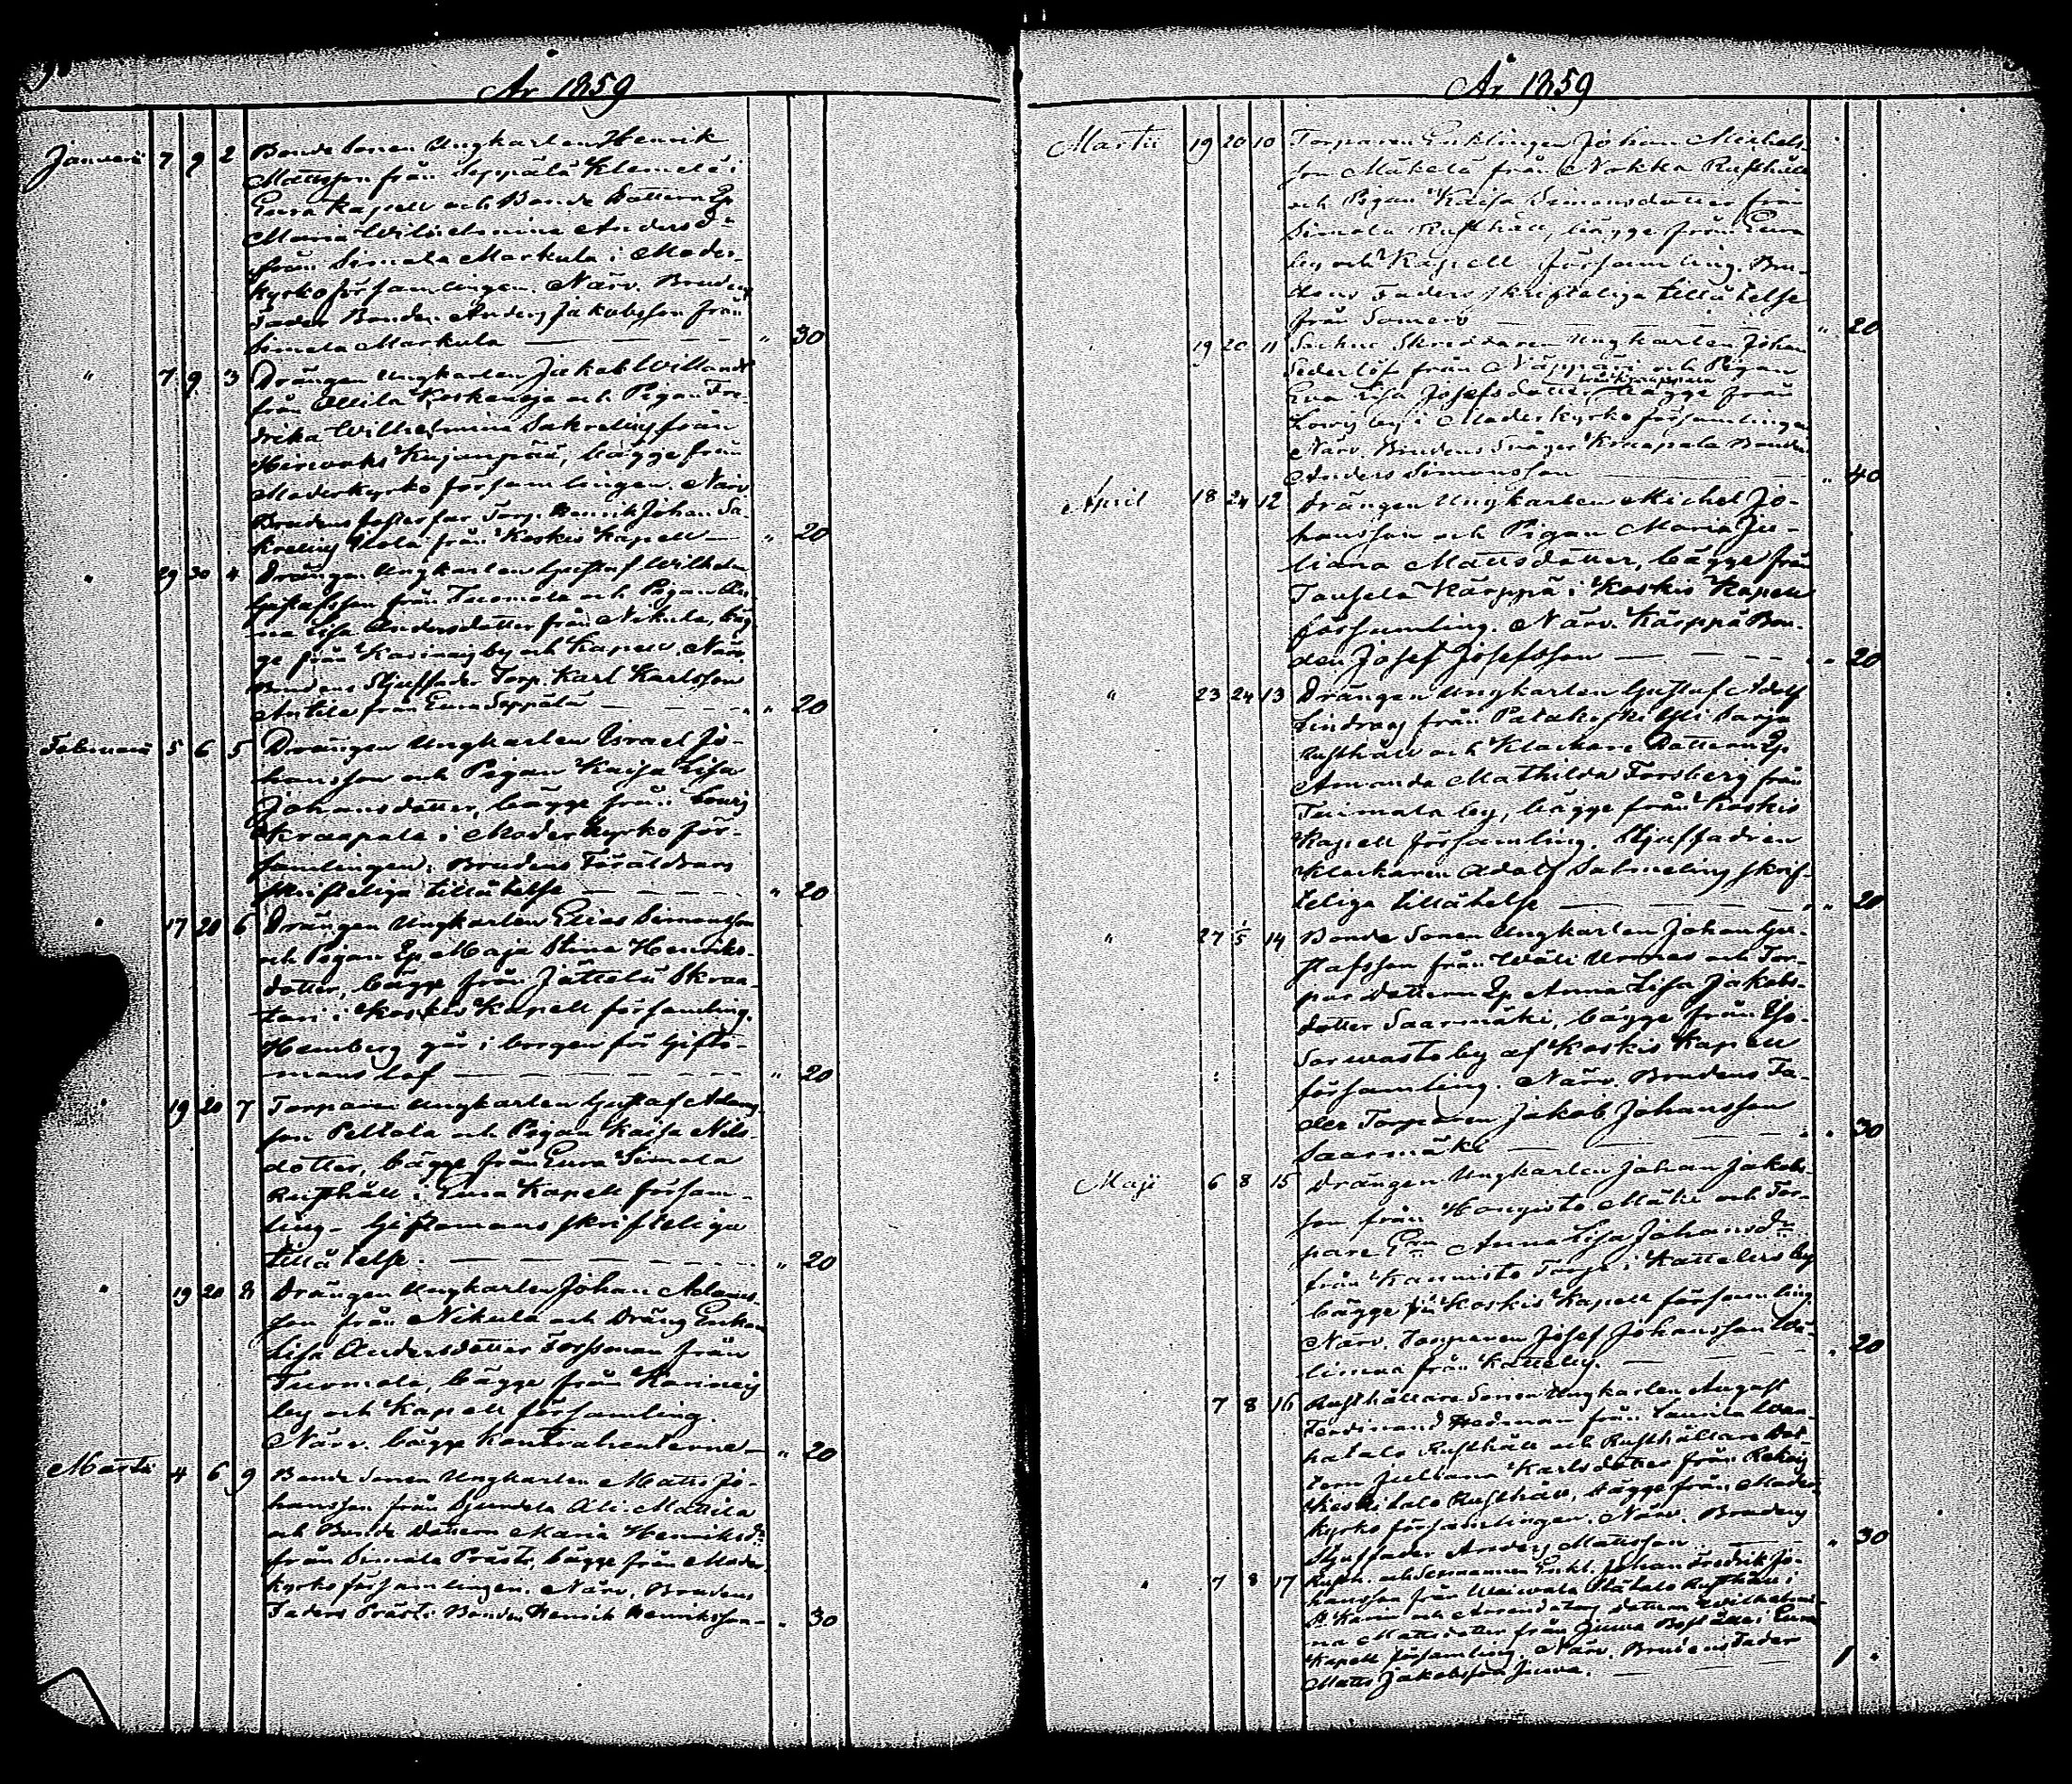 År 1859
Januari 7 9 2 Bonde Sonen Ungkarlen Henrik
Mattsson från Seppälä Klemelä i
Eura Kapell och Bonde Dottern Ep
Maria Wilhelmina Andersdr
från Simala Markula i Moder-
kyrko församlingen. Närv. Brudens
Fader Bonden Anders Jakobsson från
Simala Markula — " 30
" 7 9 3 Drängen Ungkarlen Jakob
från Ollila Koskenoja och Pigan Fre-
drika Wilhelmina Sakreling från
Hirvoaho Kujanpää, bägge från
Moderkyrko församlingen. Närv.
Brudens Torp. Henrik Johan Sa-
kreling från Koskis Kapell — " 20
" 29 30 4 Drängen Ungkarlen Gustaf Wilhelm
Gustafsson från Tuomola och Pigan An-
na Lisa Andersdotter från Nikula, bäg-
ge från Karinais by och Kapell. Närv.
Brudens Stjuffader Torp. Karl Karlsson
Antila från Eura Seppälä — " 20
Februari 5 6 5 Drängen Ungkarlen Israel Jo-
hansson och Pigan Kaisa Lisa
Johansdotter, bägge från
Kraapala i Moderkyrko för-
samlingen. Brudens Föräldrars
skrifteliga tillåtelse — " 20
" 17 20 6 Drängen Ungkarlen Elias Simonsson
och Pigan Ep Maja Stina Henriks-
dotter, bägge från Jättelä Skraa-
tari i Koskis Kapell församling.
Hemberg går i borgen för Gifto-
mans lof — " 20
" 19 20 7 Torparen Ungkarlen Gustaf Adams-
son Peltola och Pigan Kaisa Nils-
dotter, bägge från Eura Simala
Rusthåll i Eura Kapell försam-
ling. Giftomans skrifteliga
tillåtelse. — " 20
" 19 20 8 Drängen Ungkarlen Johan Adams-
son från Nikula och Dräng Enkan
Lisa Andersdotter Forssman från
Tuomola, bägge från Karinais
by och Kapell församling.
Närv. bägge Kontrahenterne — " 20
Martii 4 6 9 Bonde Sonen Ungkarlen Matts Jo-
hansson från Ali-Mattila
och Bonde Dottern Maria Henriksdr
från Simala Prästi, bägge från Moder-
kyrko församlingen. Närv. Brudens
Faders Prästi Bonden Henrik Henriksson — " 30
År 1859
Martii 19 20 10 Torparen Enklingen Johan Michels-
son Mäkelä från Nokka Rusthåll
och Pigan Kaisa Simonsdotter från
Simala Rusthåll, bägge från Eura
by och Kapell församling. Bru-
dens Faders skrifteliga tillåtelse
från Somero — " 20
19 20 11 Sockne Skräddaren Ungkarlen Johan
Sederlöf från Näppäri och Pigan
Eva Lisa Josefsdotter från Kraapala bägge från
by i Moderkyrko församlingen
Närv. Brudens Svåger Kraapala Bonden
Anders Simonsson — " 40
April 18 24 12 Drängen Ungkarlen Michel Jo-
hansson och Pigan Maria Ju-
liana Mattsdotter, bägge från
Tausela Kärppä i Koskis Kapell
församling. Närv. Kärppä Bon-
den Josef Josefsson — " 20
" 23 24 13 Drängen Ungkarlen Gustaf Adolf
Lindroos från Patakoski Yli Sarja
Rusthåll och Klockare Dottern Ep
Amanda Mathilda Forsberg från
Tuimala by, bägge från Koskis
Kapell församling. Stjuffadren
Klockaren Adolf Salmeling skrif-
teliga tillåtelse — " 20
" 27 1/5 14 Bonde Sonen Ungkarlen Johan Gu-
stafsson från Wäli Urmas och Tor-
par Dottern Ep Anna Lisa Jakobs-
dotter Saarmäki, bägge från
Sorvasto by af Koskis Kapell
församling. Närv. Brudens Fa-
der Torparen Jakob Johansson
Saarmäki — " 30
Maji 6 8 15 Drängen Ungkarlen Johan Jakobs-
son från Hongisto Mäki och Tor-
pare Enkan Anna Lisa Johansdr
från Kannisto Torp i Kattelus by
bägge från Koskis Kapell församling.
Närv. Torparen Josef Johansson
från — " 20
7 8 16 Rusthållare Sonen Ungkarlen August
Ferdinand Hedman från Laurila Wan-
hatalo Rusthåll och Rusthållare Dot-
tern Juliana Karlsdotter från
Keskitalo Rusthåll, bägge från Moder-
kyrko församlingen. Närv. Brudens
Stjuffader Anders Mattsson. — " 30
" 7 8 17 Rusth. och Enkl. Johan Fredrik Jo-
hansson från Stähalo Rusthåll i
St Karins och Arrendators dottern Wilhelmi-
na Mattsdotter från Juva Boställe i Eura
Kapell församling. Närv. Brudens Fader
Matts Jakobsson Juva. — 1 "